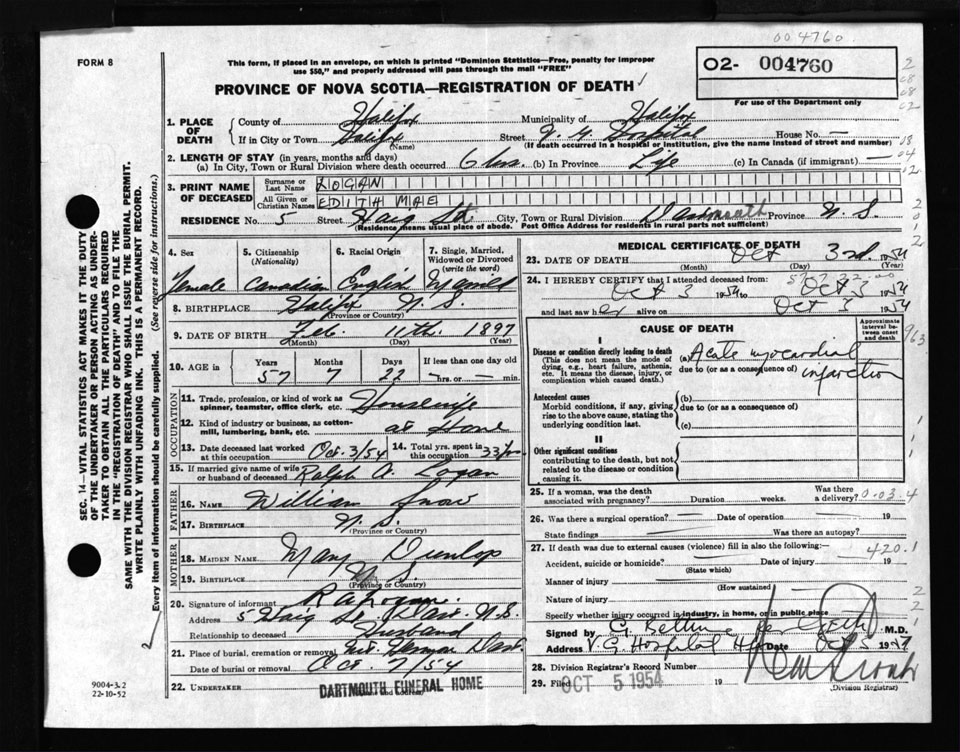 004760
FORM 8
This form, if placed in an envelope, on which is printed "Dominion Statistics—Free, penalty for improper
use $50," and properly addressed will pass through the mail "FREE"
O2- 004760
For use of the Department only
PROVINCE OF NOVA SCOTIA—REGISTRATION OF DEATH
1. PLACE OF DEATH
County of Halifax Municipality of Halifax
If in City or Town Halifax Street V. G. Hospital House No. —
(Name) (If death occurred in a hospital or institution, give the name instead of street and number)
2. LENGTH OF STAY (in years, months and days)
(a) In City, Town or Rural Division where death occurred 6 hrs. (b) In Province Life (c) In Canada (if immigrant) —
3. PRINT NAME OF DECEASED
Surname or Last Name LOGAN
All Given or Christian Names EDITH MAE
RESIDENCE No. 5 Street Haig St. City, Town or Rural Division Dartmouth Province N. S.
(Residence means usual place of abode. Post Office Address for residents in rural parts not sufficient)
4. Sex Female
5. Citizenship (Nationality) Canadian
6. Racial Origin English
7. Single, Married, Widowed or Divorced (write the word) Married
8. BIRTHPLACE Halifax N. S.
(Province or Country)
9. DATE OF BIRTH Feb. 11th. 1897
(Month) (Day) (Year)
10. AGE in Years 57 Months 7 Days 22 If less than one day old — hrs. or — min.
OCCUPATION
11. Trade, profession, or kind of work as spinner, teamster, office clerk, etc. Housewife
12. Kind of industry or business, as cotton-mill, lumbering, bank, etc. at Home
13. Date deceased last worked at this occupation Oct. 3/54
14. Total yrs. spent in this occupation 33 yrs
15. If married give name of wife or husband of deceased Ralph A. Logan
FATHER
16. NAME William Snow
17. BIRTHPLACE N. S.
(Province or Country)
MOTHER
18. MAIDEN NAME Mary Dunlop
19. BIRTHPLACE N. S.
(Province or Country)
20. Signature of informant
Address 5 Haig St. Dart. N.S.
Relationship to deceased Husband
21. Place of burial, cremation or removal Mt. Hermon Dart.
Date of burial or removal Oct 7/54
22. UNDERTAKER DARTMOUTH FUNERAL HOME
MEDICAL CERTIFICATE OF DEATH
23. DATE OF DEATH Oct 3rd. 1954
(Month) (Day)
24. I HEREBY CERTIFY that I attended deceased
Oct 3 1954 Oct 3 1954
and last saw her alive on Oct 3 1954
CAUSE OF DEATH
Approximate interval between onset and death
I
Disease or condition directly leading to death (a) Acute myocardial infarction
(This does not mean the mode of dying, e.g., heart failure, asthenia, etc. It means the disease, injury, or complication which caused death.)
due to (or as a consequence of)
Antecedent causes (b)
Morbid conditions, if any, giving rise to the above cause, stating the underlying condition last.
due to (or as a consequence of)
(c)
II
Other significant conditions
contributing to the death, but not related to the disease or condition causing it.
25. If a woman, was the death associated with pregnancy? Duration weeks. Was there a delivery? 0.03.4
26. Was there a surgical operation? — Date of operation — 19
State findings Was there an autopsy?
27. If death was due to external causes (violence) fill in also the following:— 420.1
Accident, suicide or homicide? Date of injury 19
(State which)
Manner of injury
(How sustained)
Nature of injury
Specify whether injury occurred in industry, in home, or in public place
Signed by M.D.
Address V. G. Hospital Hfx Date Oct 3 1954
28. Division Registrar's Record Number
29. Filed OCT 5 1954 19
(Division Registrar)
SEC. 14—VITAL STATISTICS ACT MAKES IT THE DUTY
OF THE UNDERTAKER OR PERSON ACTING AS UNDER-
TAKER TO OBTAIN ALL THE PARTICULARS REQUIRED
IN THE "REGISTRATION OF DEATH" AND TO FILE THE
SAME WITH THE DIVISION REGISTRAR WHO SHALL ISSUE THE BURIAL PERMIT.
WRITE PLAINLY WITH UNFADING INK. THIS IS A PERMANENT RECORD.
Every item of information should be carefully supplied. (See reverse side for instructions.)
9004-3.2
22-10-52